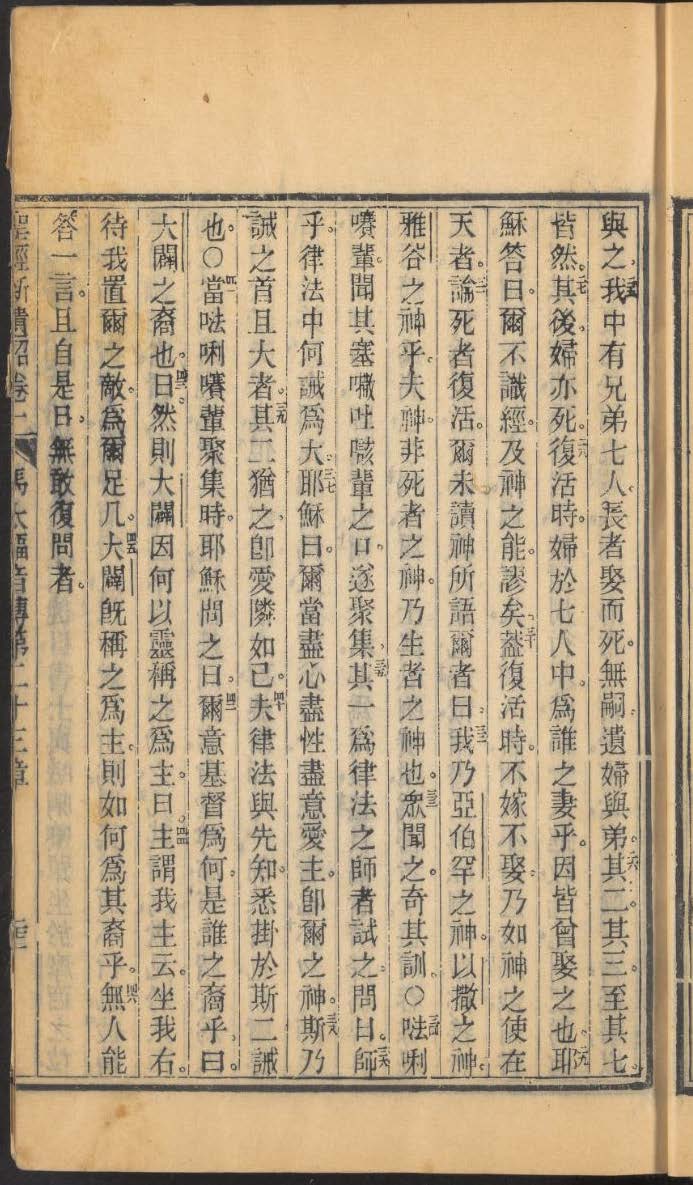 與之我中有兄弟七人長者娶而死無嗣遺婦與弟其二其三至其七
皆然其後婦亦死復活時婦於七人中為誰之妻乎因皆曾娶之也耶
穌答曰爾不識經及神之能謬矣葢復活時不嫁不娶乃如神之使在
天者論死者復活爾未讀神所語爾者曰我乃亞伯罕之神以撒之神
雅谷之神乎夫神非死者之神乃生者之神也眾聞之奇其訓〇𠵽唎
㘔輩聞其塞㘔吐㗒輩之口遂聚集其一為律法之師者試之問曰師
乎律法中何誡為大耶穌曰爾當盡心盡性盡意愛主卽爾之神斯乃
誡之首且大者其二猶之卽愛隣如己夫律法與先知悉掛於斯二誡
也〇當𠵽唎㘔輩聚集時耶穌問之曰爾意基督為何是誰之裔乎曰
大闢之裔也曰然則大闢因何以靈稱之為主曰主謂我主云坐我右
待我置爾之敵為爾足几大闢旣稱之為主則如何為其裔乎無人能
答一言且自是日無敢復問者
聖經新遺詔卷一 馬太福音傳第二十三章